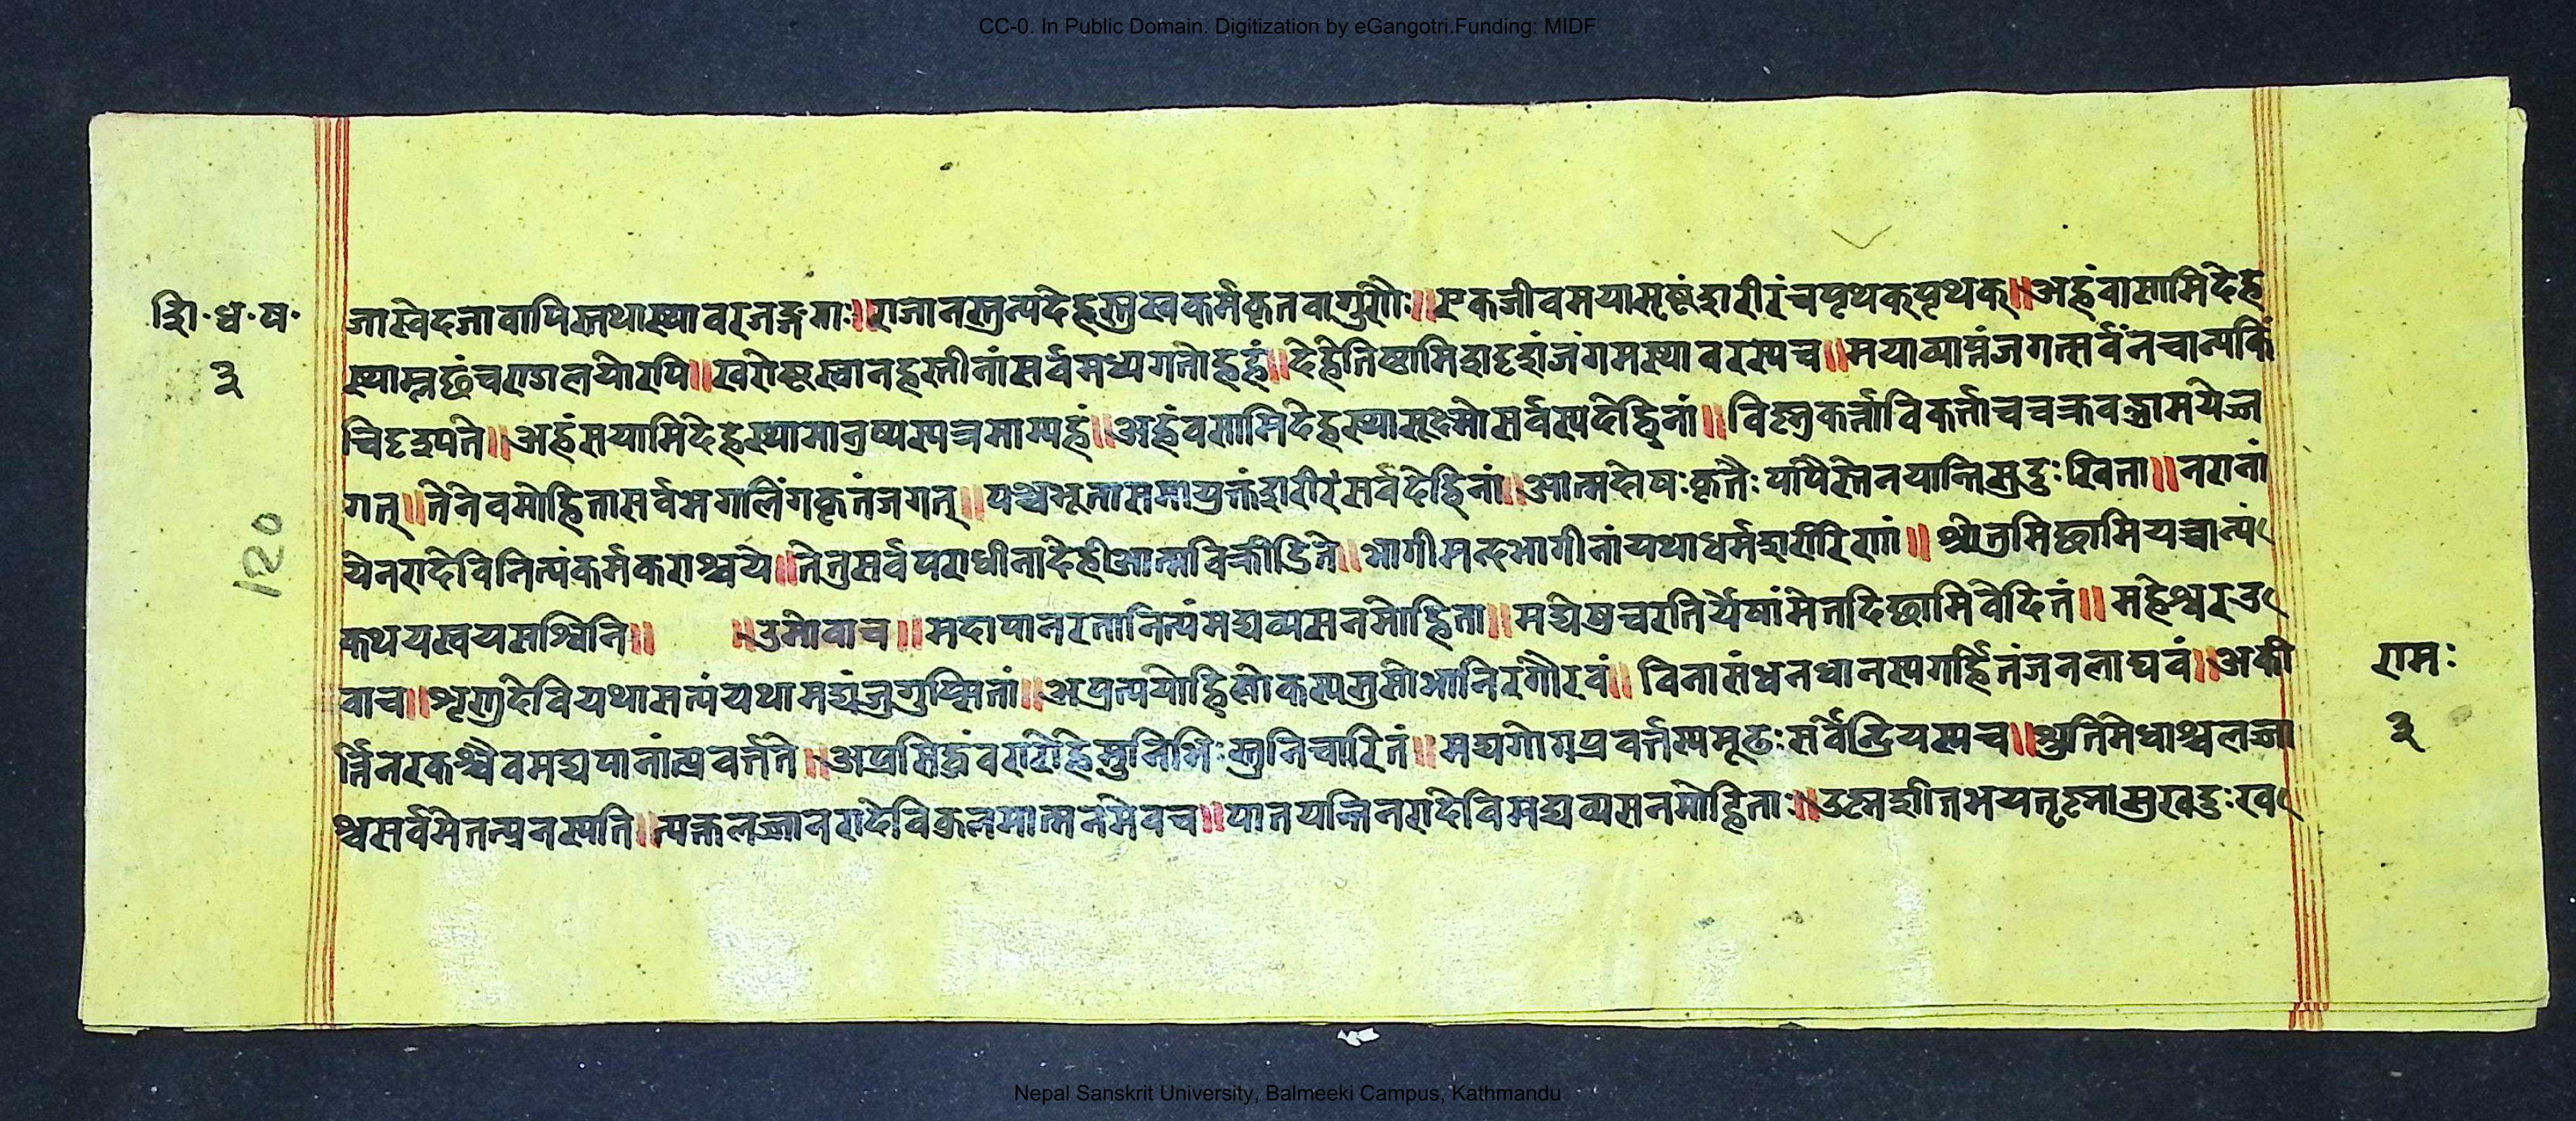 CC-0. In Public Domain. Digitization by eGangotri.Funding: MIDF
शि॰ध॰ष॰
३
जास्वेदजावापिस्तथास्थावरजङ्गमाः॥राजानस्तुत्यदेहस्तुस्वकर्मकृतवागुरौः॥एकजीवमयासृष्टंशरीरंचपृथक्पृथक्॥अहंवासामिदेह
स्याम्लछंचरागलयोरपि॥खरोष्ट्रस्वानहस्तीनांसर्वमध्यगतोह्यहं॥देहेतिष्ठामिशदृशंजंगमस्थावरस्यच॥मयाव्याप्तंजगत्सर्वंनचान्यकिं
चिदृश्यते॥अहंसयामिदेहस्थामानुष्यस्यत्रमाम्यहं॥अहंवसामिदेहस्थासूक्ष्मोसर्वस्यदेहिनां॥विष्णुकर्त्ताविकर्त्ताचचक्रवद्भ्रामयेज्ज
गत्॥तेनेवमोहितासर्वभगालिंगकृतंजगत्॥पञ्चभूतासमायुक्तंशरीरंसर्वदेहिनां॥आत्मदोषःकृतैःपापैस्तेनयान्तिसुदुःखिता॥नराना
येनरादेविनित्यंकर्मकराश्चये॥तेतुसर्वपराधीनादेहीआत्माविक्रीडिते॥भागीमन्दभागीनांयथाधर्मशरीरिणां॥श्रोतुमिछामियच्चान्यं
कथयस्वयसश्विनि॥ ॥उमोवाच॥मदापानरतानित्यंमद्यव्यसनमोहिता॥मद्येषुचरतिर्येषांमेतदिछामिवेदितं॥महेश्वरउ
वाच॥शृणुदेवियथासत्यंयथामद्यंजुगुप्सितां॥अप्रत्ययोहिलोकस्यसुसोभानिरगौरवं॥विनासंधनधानस्यगर्हितंजनलाघवं॥अकी
र्त्तिनरकश्चैवमद्यपानांत्प्रवर्त्तते॥अप्रसिद्धंवरारोहेमुनिभिःसुनिचारितं॥मद्यगोगप्रवर्त्तस्यमूढःसर्वेन्द्रियस्यच॥श्रुतिमेधाश्चलज्जा
श्चसर्वमेतत्प्रनस्यति॥त्यक्तलज्जानरादेविकुलमात्मनमेवच॥पातयन्तिनरादेविमद्यव्यसनमोहिताः॥उष्णशीतभयतृष्नासुखदुःख
120
रामः
३
Nepal Sanskrit University, Balmeeki Campus, Kathmandu